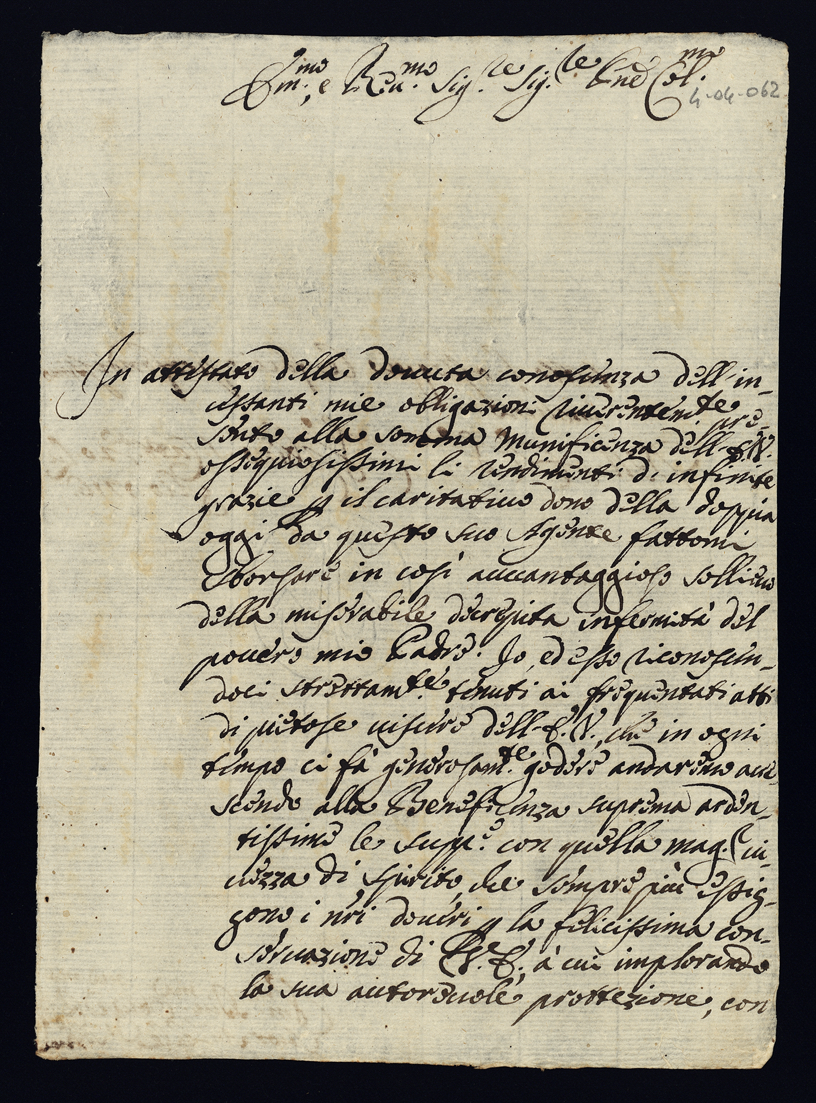 Em.mo, e Rev.mo Sig.re Sig.re P̃ne Col.mo
4-04-062
In attestato della douuta conoscenza dell'in-
cessanti mie obligazioni riuerentem.te pre-
sento alla somma munificenza dell'E.V.
ossequiosissimi li rendimenti di infinite
grazie p il caritatiuo dono della doppia
oggi da questo suo Agente fattomi
sborsare in così auuantaggioso sollieuo
della miserabile decrepita infermità del
pouero mio Padre. Io, ed esso riconoscen-
doci strettam.te tenuti ai frequentati atti
di pietose uiscere dell'E.V., che in ogni
tempo ci fà generosam.te godere andaremo acc
scendo alla Beneficenza suprema arden-
tissime le supp.e con quella mag.r ui-
uezza di spirito, che sempre più essig-
gono i nr̃i doueri p la felicissima con-
seruazione di V.E., à cui implorando
la sua autoreuole prottezione, con